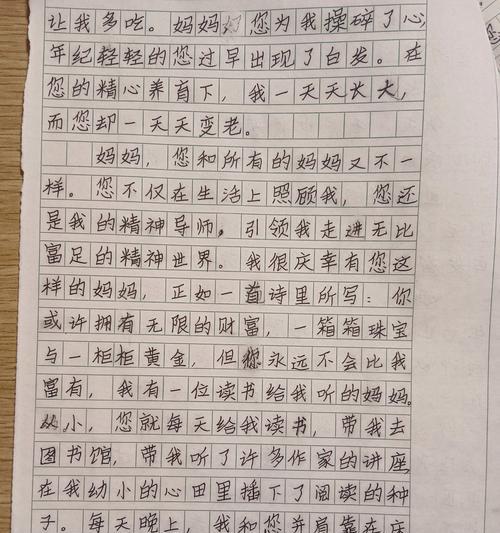 让我多吃。妈妈妈您为我操碎了心
年纪轻轻的您过早出现了白发。在
您的精心养育下，我一天天长大，
而您却一天天变老。
妈妈，您和所有的妈妈又不一
样。您不仅在生活上照顾我，您还
是我的精神导师，引领我走进无比
富足的精神世界。我很庆幸有您这
样的妈妈，正如一首诗里所写：你
或许拥有无限的财富，一箱箱珠宝
与一柜柜黄金，但您永远不会比我
富有，我有一位读书给我听的妈妈。
从小，您就每天给我读书，带我去
图书馆，带我听了许多作家的讲座
在我幼小的心田里播下了阅读的种
子。每天晚上，我和您并肩靠在床